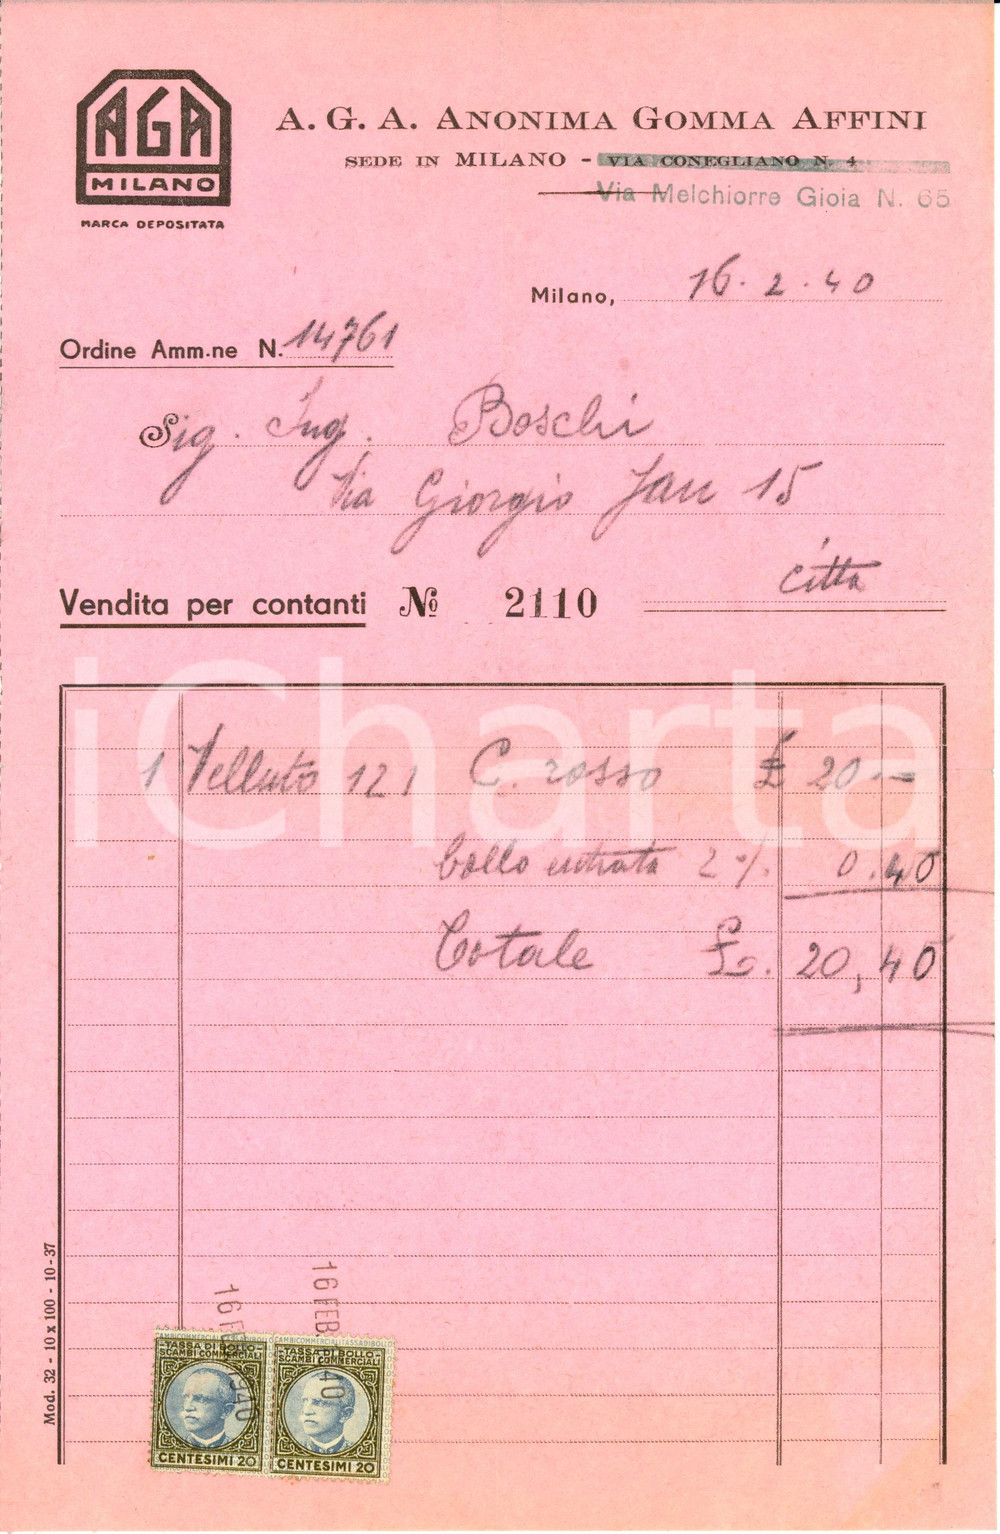 AGA
MILANO
MARCA DEPOSITATA
A. G. A. ANONIMA GOMMA AFFINI
SEDE IN MILANO - VIA CONEGLIANO N. 4
Via Melchiorre Gioia N. 65
Milano, 16. 2. 40
Ordine Amm.ne N. 14761
Sig. Ing. Boschi
Via Giorgio Jan 15
città
Vendita per contanti № 2110
iCharta
1 Velluto 121 C. rosso £ 20 —
bollo entrata 2 % 0.40
Totale £. 20,40
Mod. 32 - 10 x 100 - 10-37
16 FEB. 1940
16 FEB. 1940
TASSA DI BOLLO
SCAMBI COMMERCIALI
CENTESIMI 20
TASSA DI BOLLO
SCAMBI COMMERCIALI
CENTESIMI 20